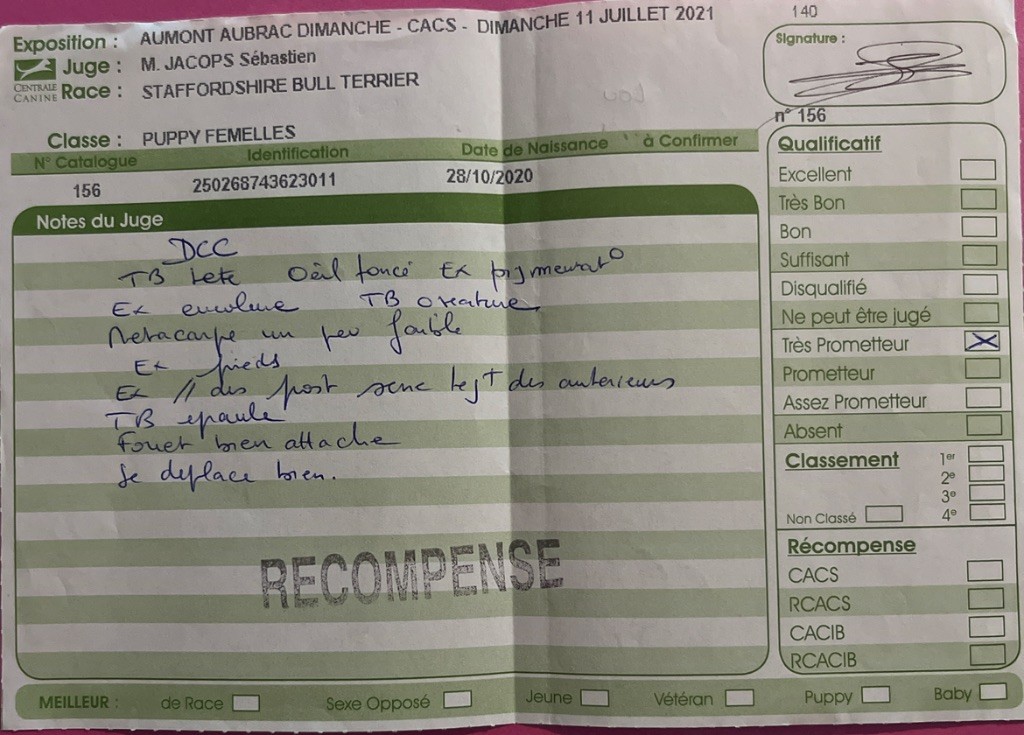 140
Exposition : AUMONT AUBRAC DIMANCHE - CACS - DIMANCHE 11 JUILLET 2021
Juge : M. JACOPS Sébastien
CENTRALE CANINE
Race : STAFFORDSHIRE BULL TERRIER
Classe : PUPPY FEMELLES
Signature :
n° 156
N° Catalogue Identification Date de Naissance à Confirmer
156 250268743623011 28/10/2020
Notes du Juge
DCC
TB tete Oeil foncé Ex pigmentat°
Ex encolure TB ossature
Metacarpe un peu faible
Ex pieds
Ex // des post des anterieurs
TB epaule
Fouet bien attache
Se deplace bien.
RECOMPENSE
Qualificatif
Excellent
Très Bon
Bon
Suffisant
Disqualifié
Ne peut être jugé
Très Prometteur X
Prometteur
Assez Prometteur
Absent
Classement 1er
2e
3e
Non Classé 4e
Récompense
CACS
RCACS
CACIB
RCACIB
MEILLEUR : de Race Sexe Opposé Jeune Vétéran Puppy Baby